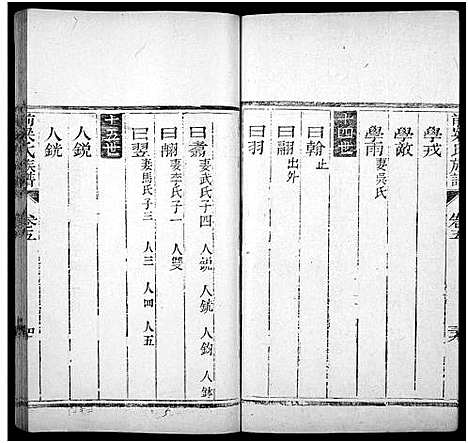 氏族譜
卷五
學戎
學敵
學雨 妻吳氏
十四世
曰翰 止
曰翮 出外
曰羽
曰翥 妻武氏子四 人銳 人銃 人鈞 人鉢
曰翱 妻李氏子一 人雙
曰翌 妻馬氏子三 人三 人四 人五
十五世
人銳
人銃
氏族譜
卷五